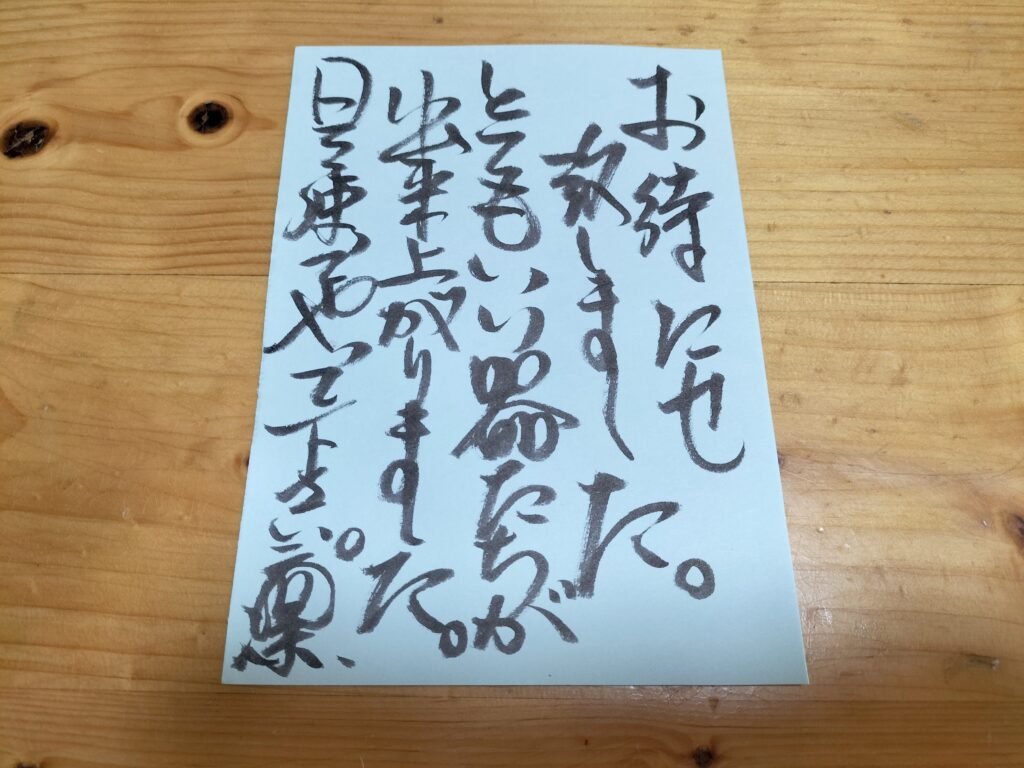 お待たせ
致しました。
とてもいい器たちが
出来上がりました。
早速 やって下さい。